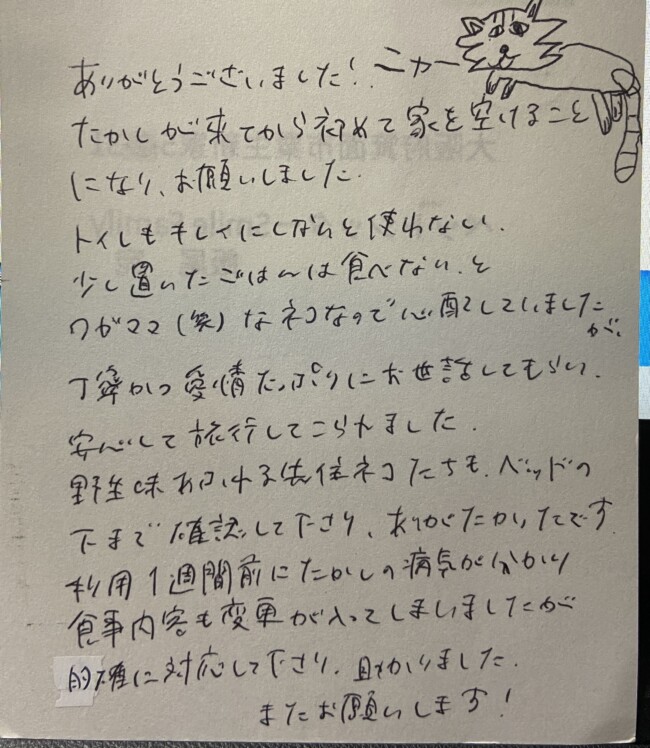 ありがとうございました! ニャー
たかしが来てから初めて家を空けること
になり、お願いしました.
トイレもキレイにしないと使わない.
少し置いたごはんは食べない.と
ワガママ(笑)なネコなので心配していましたが、
丁寧かつ愛情たっぷりにお世話してもらい.
安心して旅行してこられました.
野生味あふれる先住ネコたちも、ベッドの
下まで確認して下さり、ありがたかったです.
利用1週間前にたかしの病気が分かり
食事内容も変更が入ってしまいましたが
的確に対応して下さり.助かりました.
またお願いします!